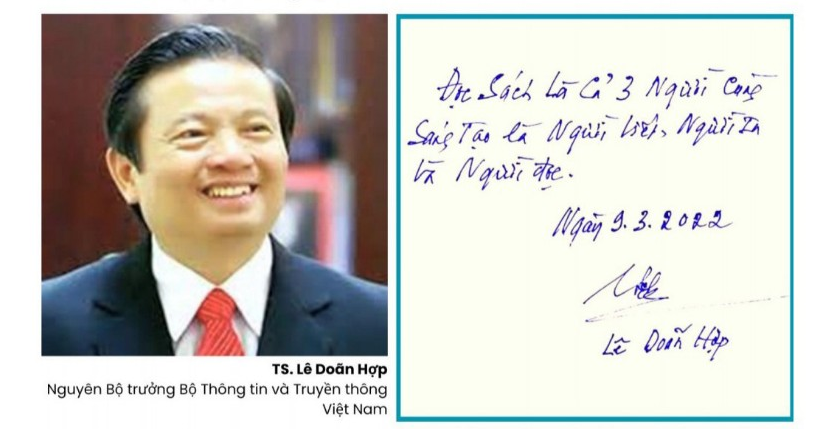 TS. Lê Doãn Hợp
Nguyên Bộ trưởng Bộ Thông tin và Truyền thông
Việt Nam
Đọc Sách là Cả 3 Người Cùng
Sáng Tạo là Người Viết, Người In
và Người đọc.
Ngày 9.3.2022
Lê Doãn Hợp